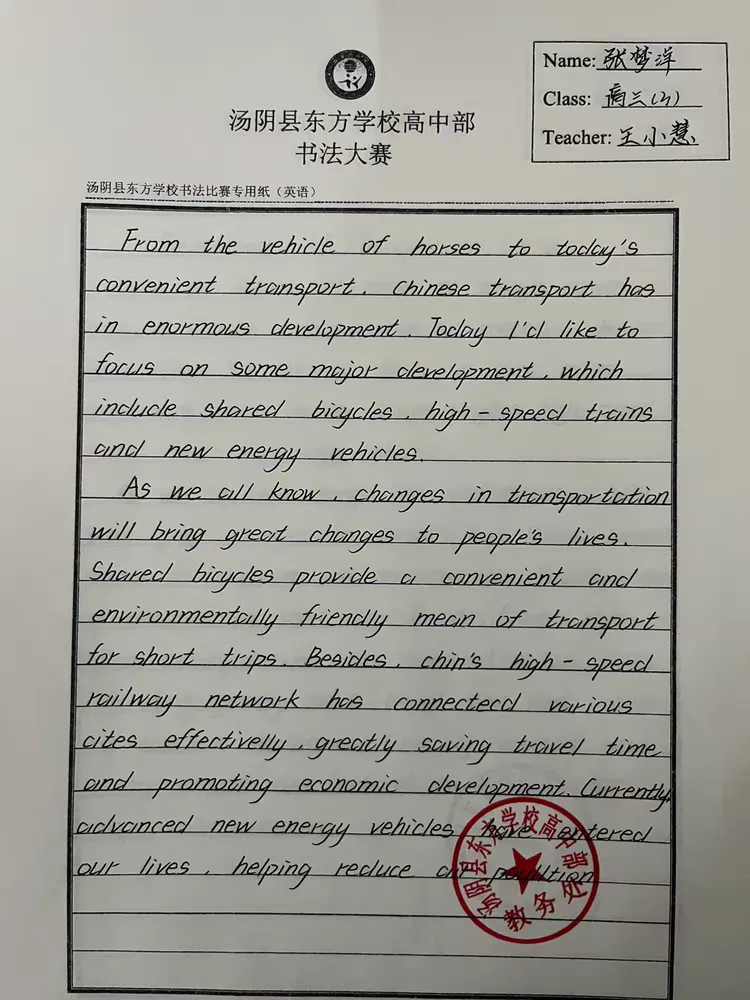 汤阴县东方学校高中部
书法大赛
Name: 张梦洋
Class: 高三(2)
Teacher: 王小慧
汤阴县东方学校书法比赛专用纸（英语）
From the vehicle of horses to today's
convenient transport, Chinese transport has
in enormous development. Today I'd like to
focus on some major development, which
include shared bicycles, high-speed trains
and new energy vehicles.
As we all know, changes in transportation
will bring great changes to people's lives.
Shared bicycles provide a convenient and
environmentally friendly mean of transport
for short trips. Besides, chin's high-speed
railway network has connectecd various
cites effectivelly, greatly saving travel time
and promoting economic development. Currently,
advanced new energy vehicles have entered
our lives, helping reduce air
汤阴县东方学校高中部
教务处